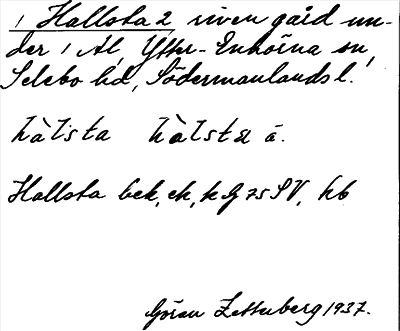 1 Hallsta 2 riven gård un-
der 1 Ål, Ytter-Enhörna sn,
Selebo hd, Södermanlands l.
hàlsta hàlsta ä.
Hallsta bek, ek, hb
Göran Zetterberg 1937.